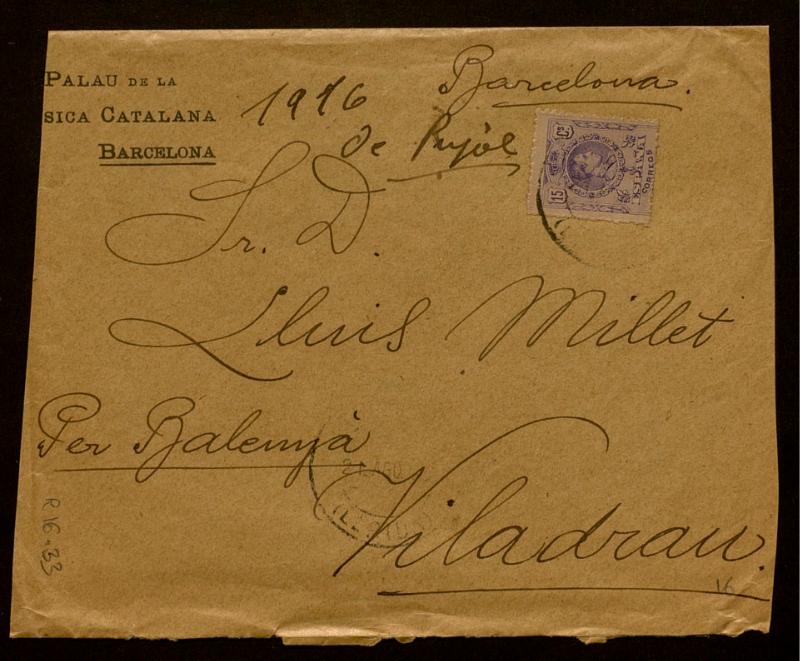 PALAU DE LA
SICA CATALANA
BARCELONA
1916
Barcelona.
de Pujol
15
CORREOS
15
Sr. D.
Lluis Millet
Per Balenyà
21 AGO
Viladrau.
R.16.33
16